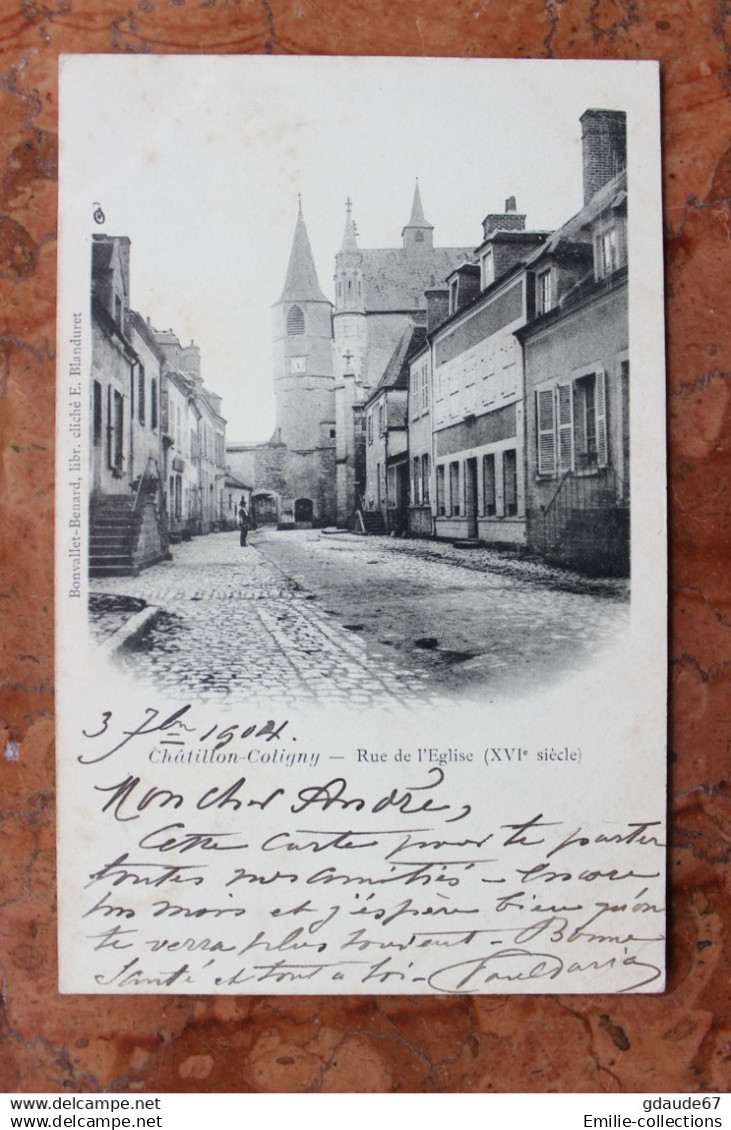 Bonvallet-Benard, libr. cliché E. Blanduret
3 7bre 1904
Châtillon-Coligny — Rue de l'Eglise (XVIe siècle)
Mon cher André,
Cette carte pour te porter
toutes nos amitiés – encore
un mois et j'espère bien qu'on
te verra plus souvent – Bonne
Santé et tout à toi – Paul
gdaude67
CARTES POSTALES > EUROPE > FRANCE > [45] LOIRET > CHATILLON COLIGNY
Emilie-collections